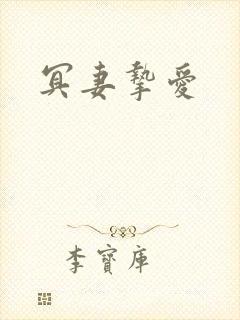 冥妻摯愛
李寶庫